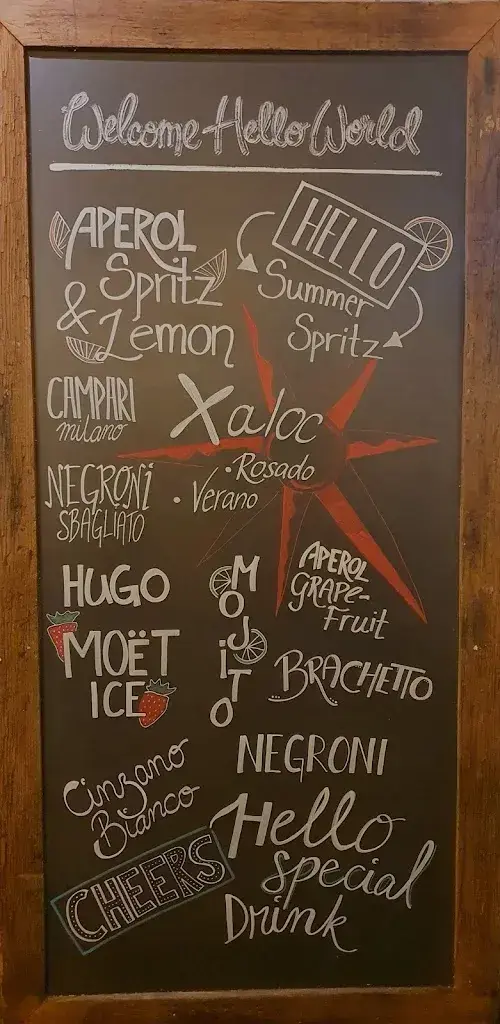 Welcome Hello World
APEROL
Spritz
& Lemon
HELLO
Summer
Spritz
CAMPARI
milano
Xaloc
• Rosado
• Verano
NEGRONI
SBAGLIATO
HUGO
MOJITO
APEROL
GRAPE-
Fruit
MOËT
ICE
BRACHETTO
NEGRONI
Cinzano
Bianco
Hello
special
Drink
CHEERS